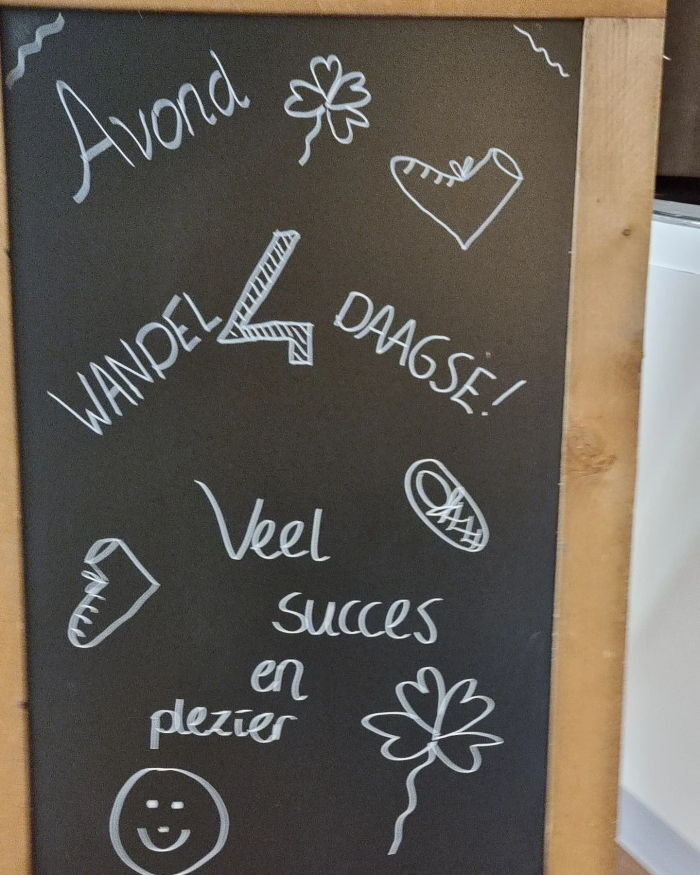 Avond
WANDEL 4 DAAGSE!
Veel
succes
en
plezier